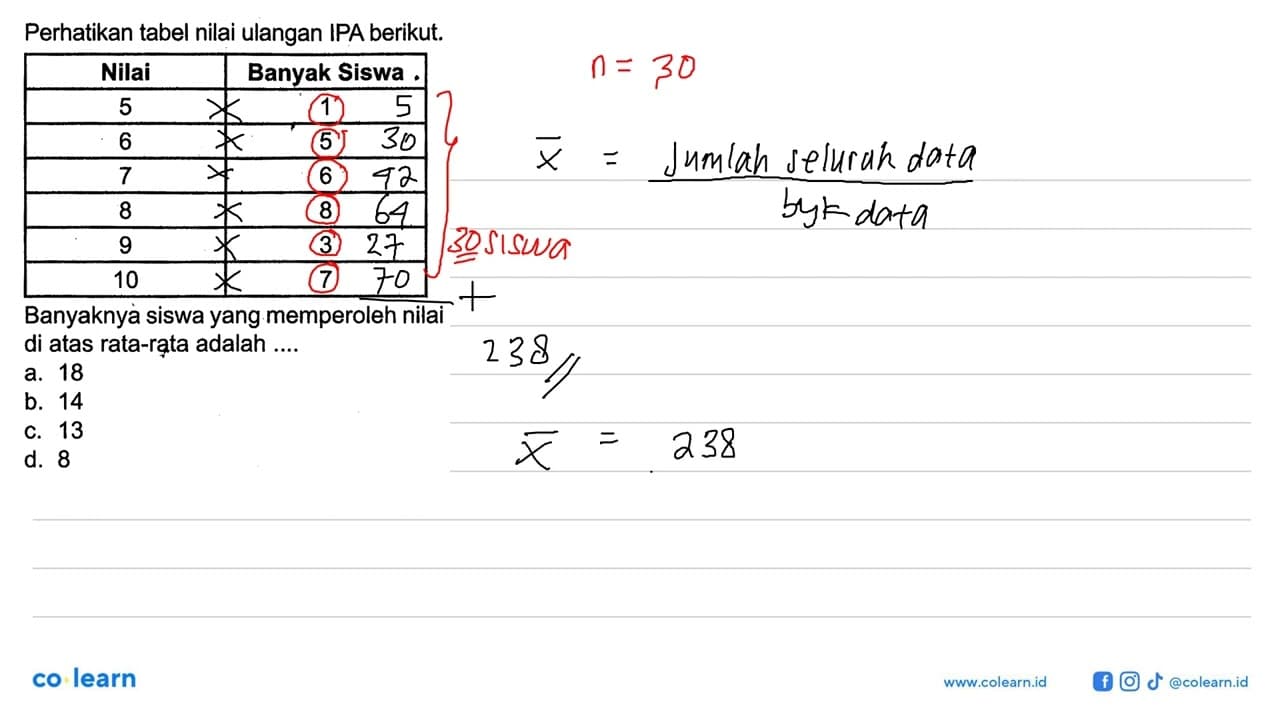 Perhatikan tabel nilai ulangan IPA berikut.
n = 30
Nilai Banyak Siswa
5 × 1 5
6 × 5 30
7 × 6 42
8 × 8 64
9 × 3 27
10 × 7 70
30 siswa
+
238
x̄ = Jumlah seluruh data
byk data
x̄ = 238
Banyaknya siswa yang memperoleh nilai
di atas rata-rata adalah ....
a. 18
b. 14
c. 13
d. 8
co learn
www.colearn.id
@colearn.id